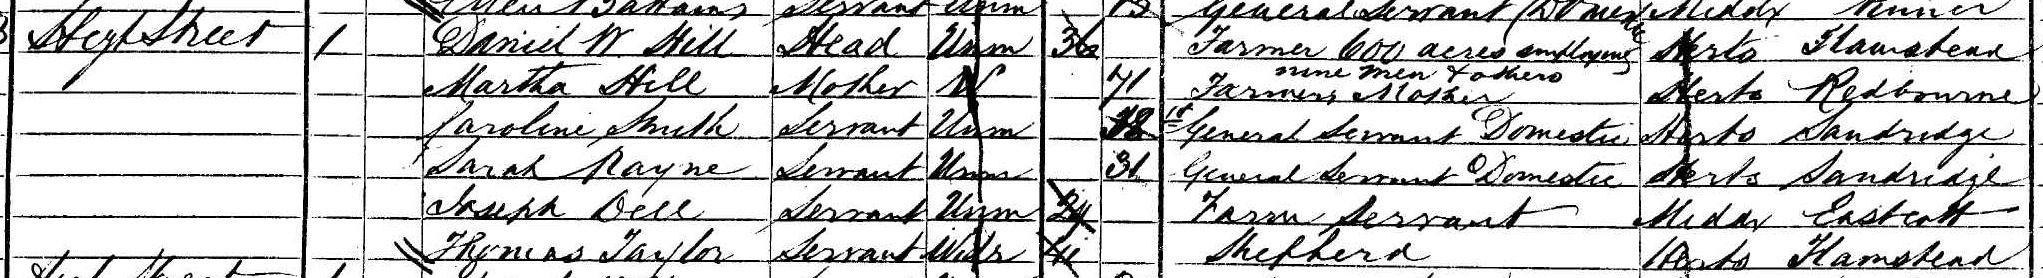 Servant Unm General Servant (Domestic Middx Pinner
High Street 1 Daniel W Hill Head Unm 36 Farmer 600 acres employing Herts Flamstead
nine men & others
Martha Hill Mother W 71 Farmers Mother Herts Redbourne
Caroline Smith Servant Unm 18 General Servant Domestic Herts Sandridge
Sarah Rayne Servant Unm 31 General Servant Domestic Herts Sandridge
Joseph Dell Servant Unm 24 Farm Servant Middx Eastcott
Thomas Taylor Servant Widr 41 Shepherd Herts Flamstead